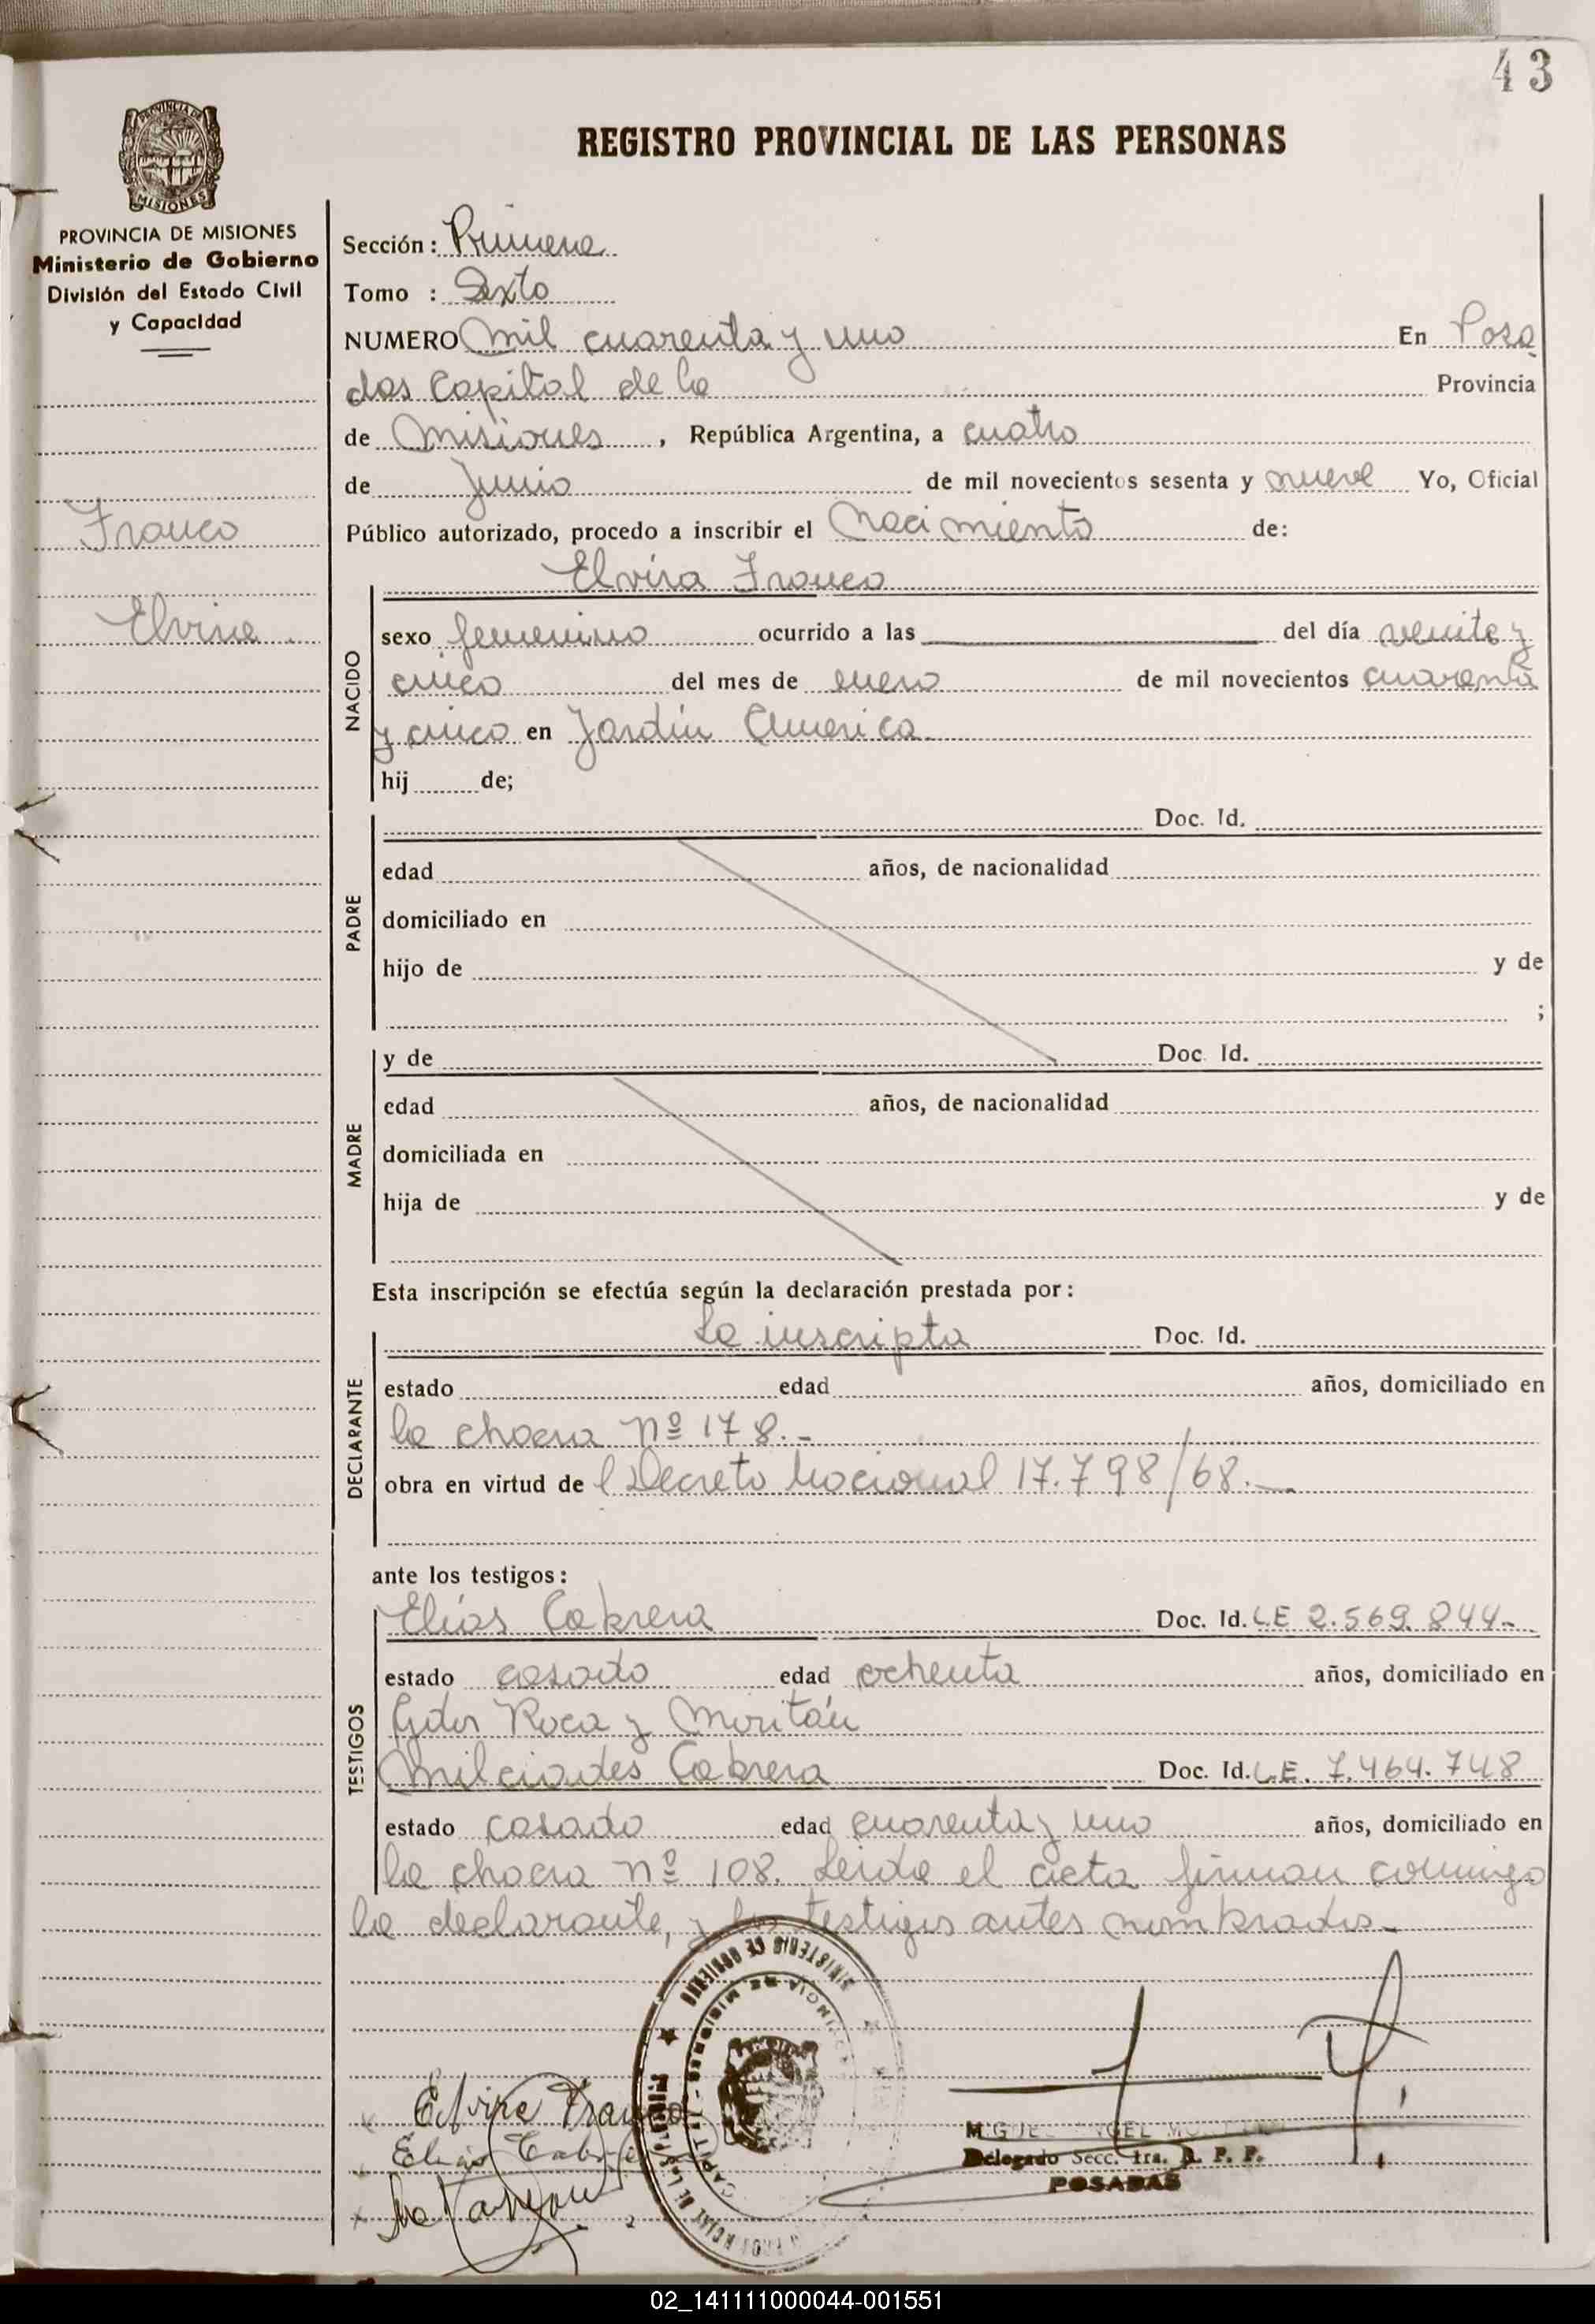 43
REGISTRO PROVINCIAL DE LAS PERSONAS
PROVINCIA DE MISIONES
Ministerio de Gobierno
División del Estado Civil
y Capacidad
Franco
Elvira
Sección: Primera
Tomo : Sexto
NUMERO mil cuarenta y uno En Posa
das Capital de la Provincia
de Misiones, República Argentina, a cuatro
de Junio de mil novecientos sesenta y nueve Yo, Oficial
Público autorizado, procedo a inscribir el Nacimiento de:
Elvira Franco
NACIDO
sexo femenino ocurrido a las del día veinte y
cinco del mes de enero de mil novecientos cuarenta
y cinco en Jardín America
hij de;
PADRE
Doc. Id.
edad años, de nacionalidad
domiciliado en
hijo de y de
;
MADRE
y de Doc. Id.
edad años, de nacionalidad
domiciliada en
hija de y de
Esta inscripción se efectúa según la declaración prestada por:
DECLARANTE
La inscripta Doc. Id.
estado edad años, domiciliado en
la chacra Nº 178.-
obra en virtud de l Decreto Nacional 17.798/68.-
ante los testigos:
TESTIGOS
Elías Cabrera Doc. Id. LE 2.569.844-
estado casado edad ochenta años, domiciliado en
Gdor Roca y Moritán
Milciades Cabrera Doc. Id. L.E. 7.464.748
estado casado edad cuarenta y uno años, domiciliado en
la chacra nº 108. Leida el acta firman conmigo
la declarante, y los testigos antes nombrados.-
MINISTERIO DE GOBIERNO
PROVINCIA DE MISIONES
Elvira Franco
Elias Cabrera
MIGUEL ANGEL
Delegado Secc. 1ra. R. P. P.
POSADAS
02_141111000044-001551